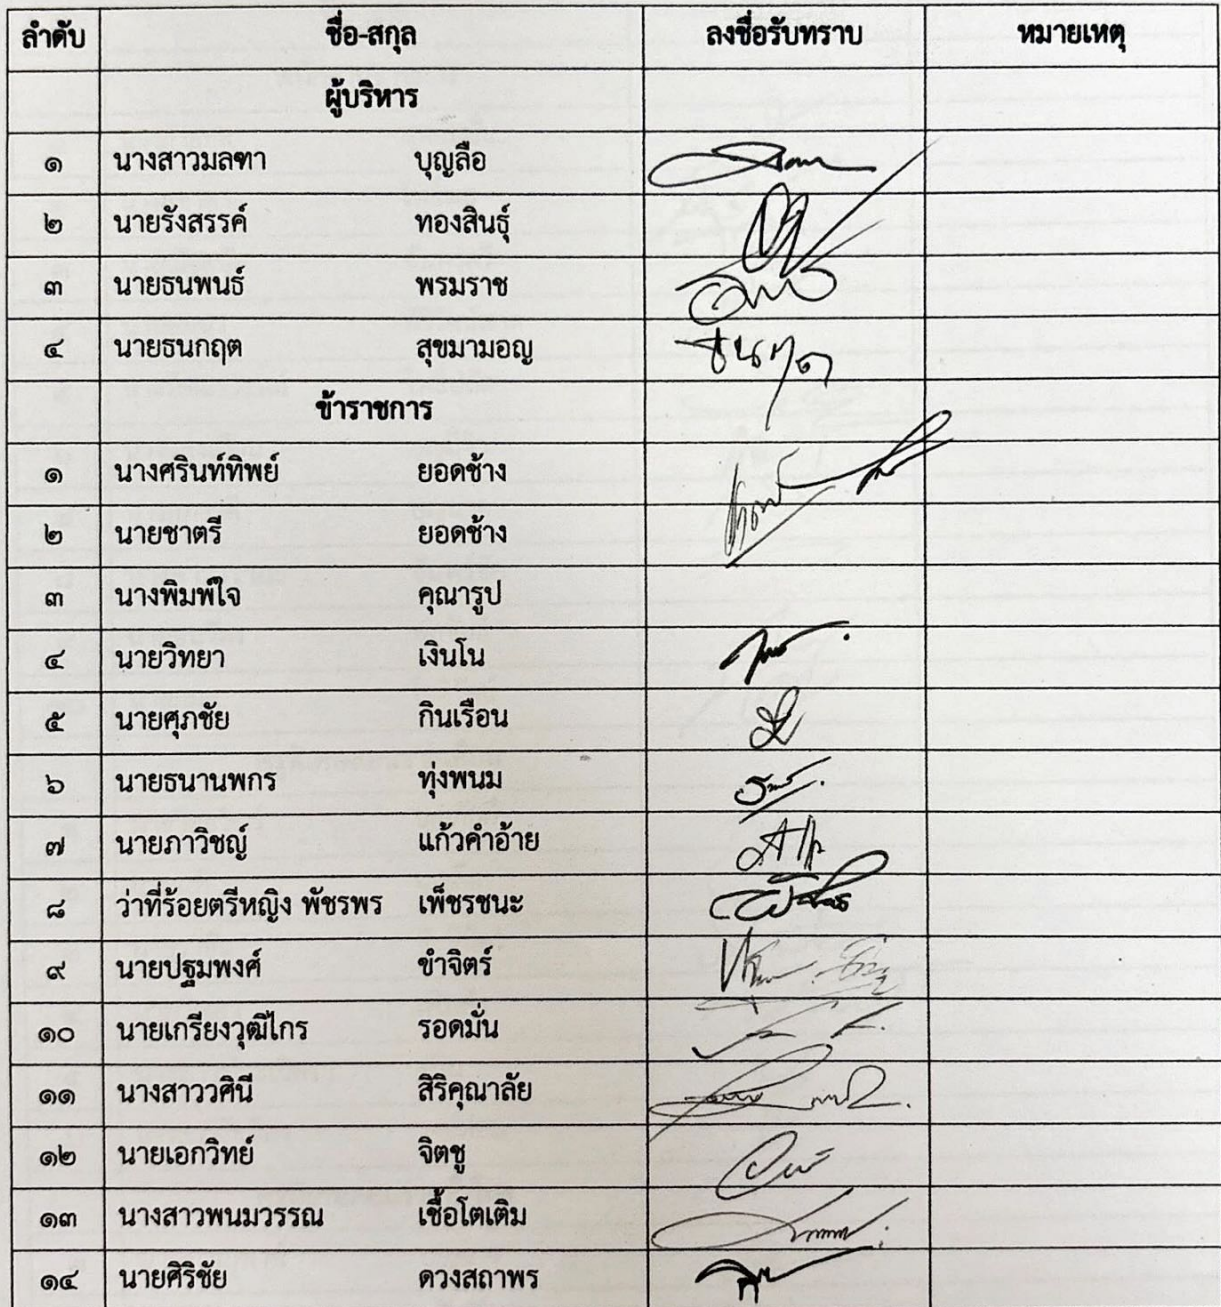 ลำดับ ชื่อ-สกุล ลงชื่อรับทราบ หมายเหตุ
ผู้บริหาร
๑ นางสาวมลฑา บุญลือ
๒ นายรังสรรค์ ทองสินธุ์
๓ นายธนพนธ์ พรมราช
๔ นายธนกฤต สุขมามอญ ธนกฤต
ข้าราชการ
๑ นางศรินท์ทิพย์ ยอดช้าง
๒ นายชาตรี ยอดช้าง
๓ นางพิมพ์ใจ คุณารูป
๔ นายวิทยา เงินโน
๕ นายศุภชัย กินเรือน
๖ นายธนานพกร ทุ่งพนม
๗ นายภาวิชญ์ แก้วคำอ้าย
๘ ว่าที่ร้อยตรีหญิง พัชรพร เพ็ชรชนะ
๙ นายปฐมพงศ์ ขำจิตร์
๑๐ นายเกรียงวุฒิไกร รอดมั่น
๑๑ นางสาววศินี สิริคุณาลัย
๑๒ นายเอกวิทย์ จิตชู
๑๓ นางสาวพนมวรรณ เชื้อโตเติม
๑๔ นายศิริชัย ดวงสถาพร